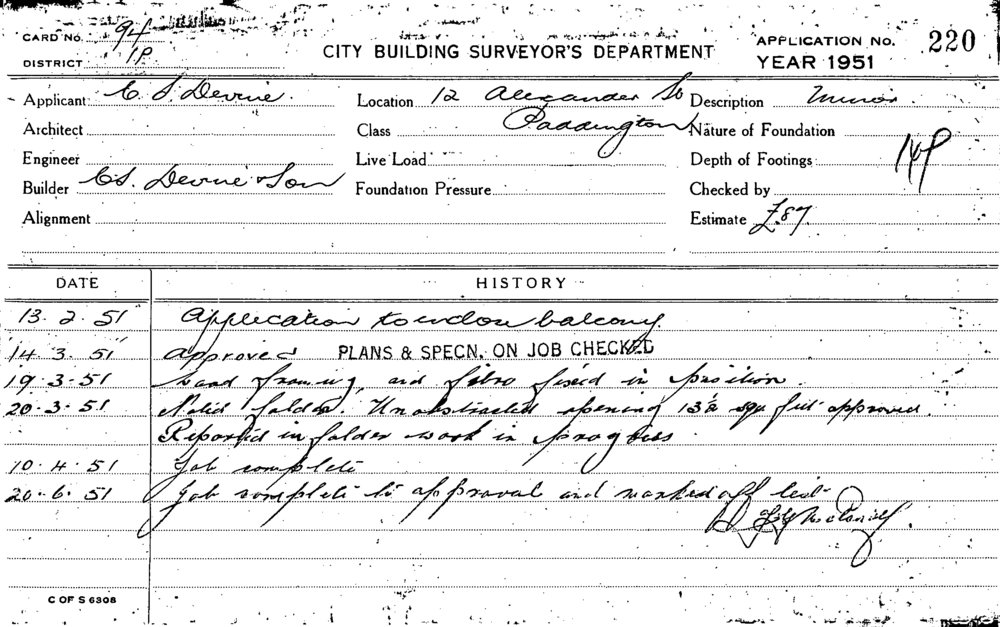 CARD No. 94
DISTRICT 1P
CITY BUILDING SURVEYOR'S DEPARTMENT
APPLICATION No. 220
YEAR 1951
Applicant C. S. Devine.
Location 12 Alexander St
Paddington
Description Minor.
Architect
Class
Nature of Foundation
Engineer
Live Load
Depth of Footings
Builder C.S. Devine & Son
Foundation Pressure
Checked by
Alignment
Estimate £87
DATE HISTORY
13.2.51 Application to enclose balcony.
14.3.51 Approved PLANS & SPECN. ON JOB CHECKED
19.3.51 framing and fibro fixed in position.
20.3.51 Noted folder. Unobstructed opening 13½ sqr feet approved.
Reported in folder work in progress
10.4.51 Job complete
20.6.51 Job complete to approval and marked off
C OF S 6308